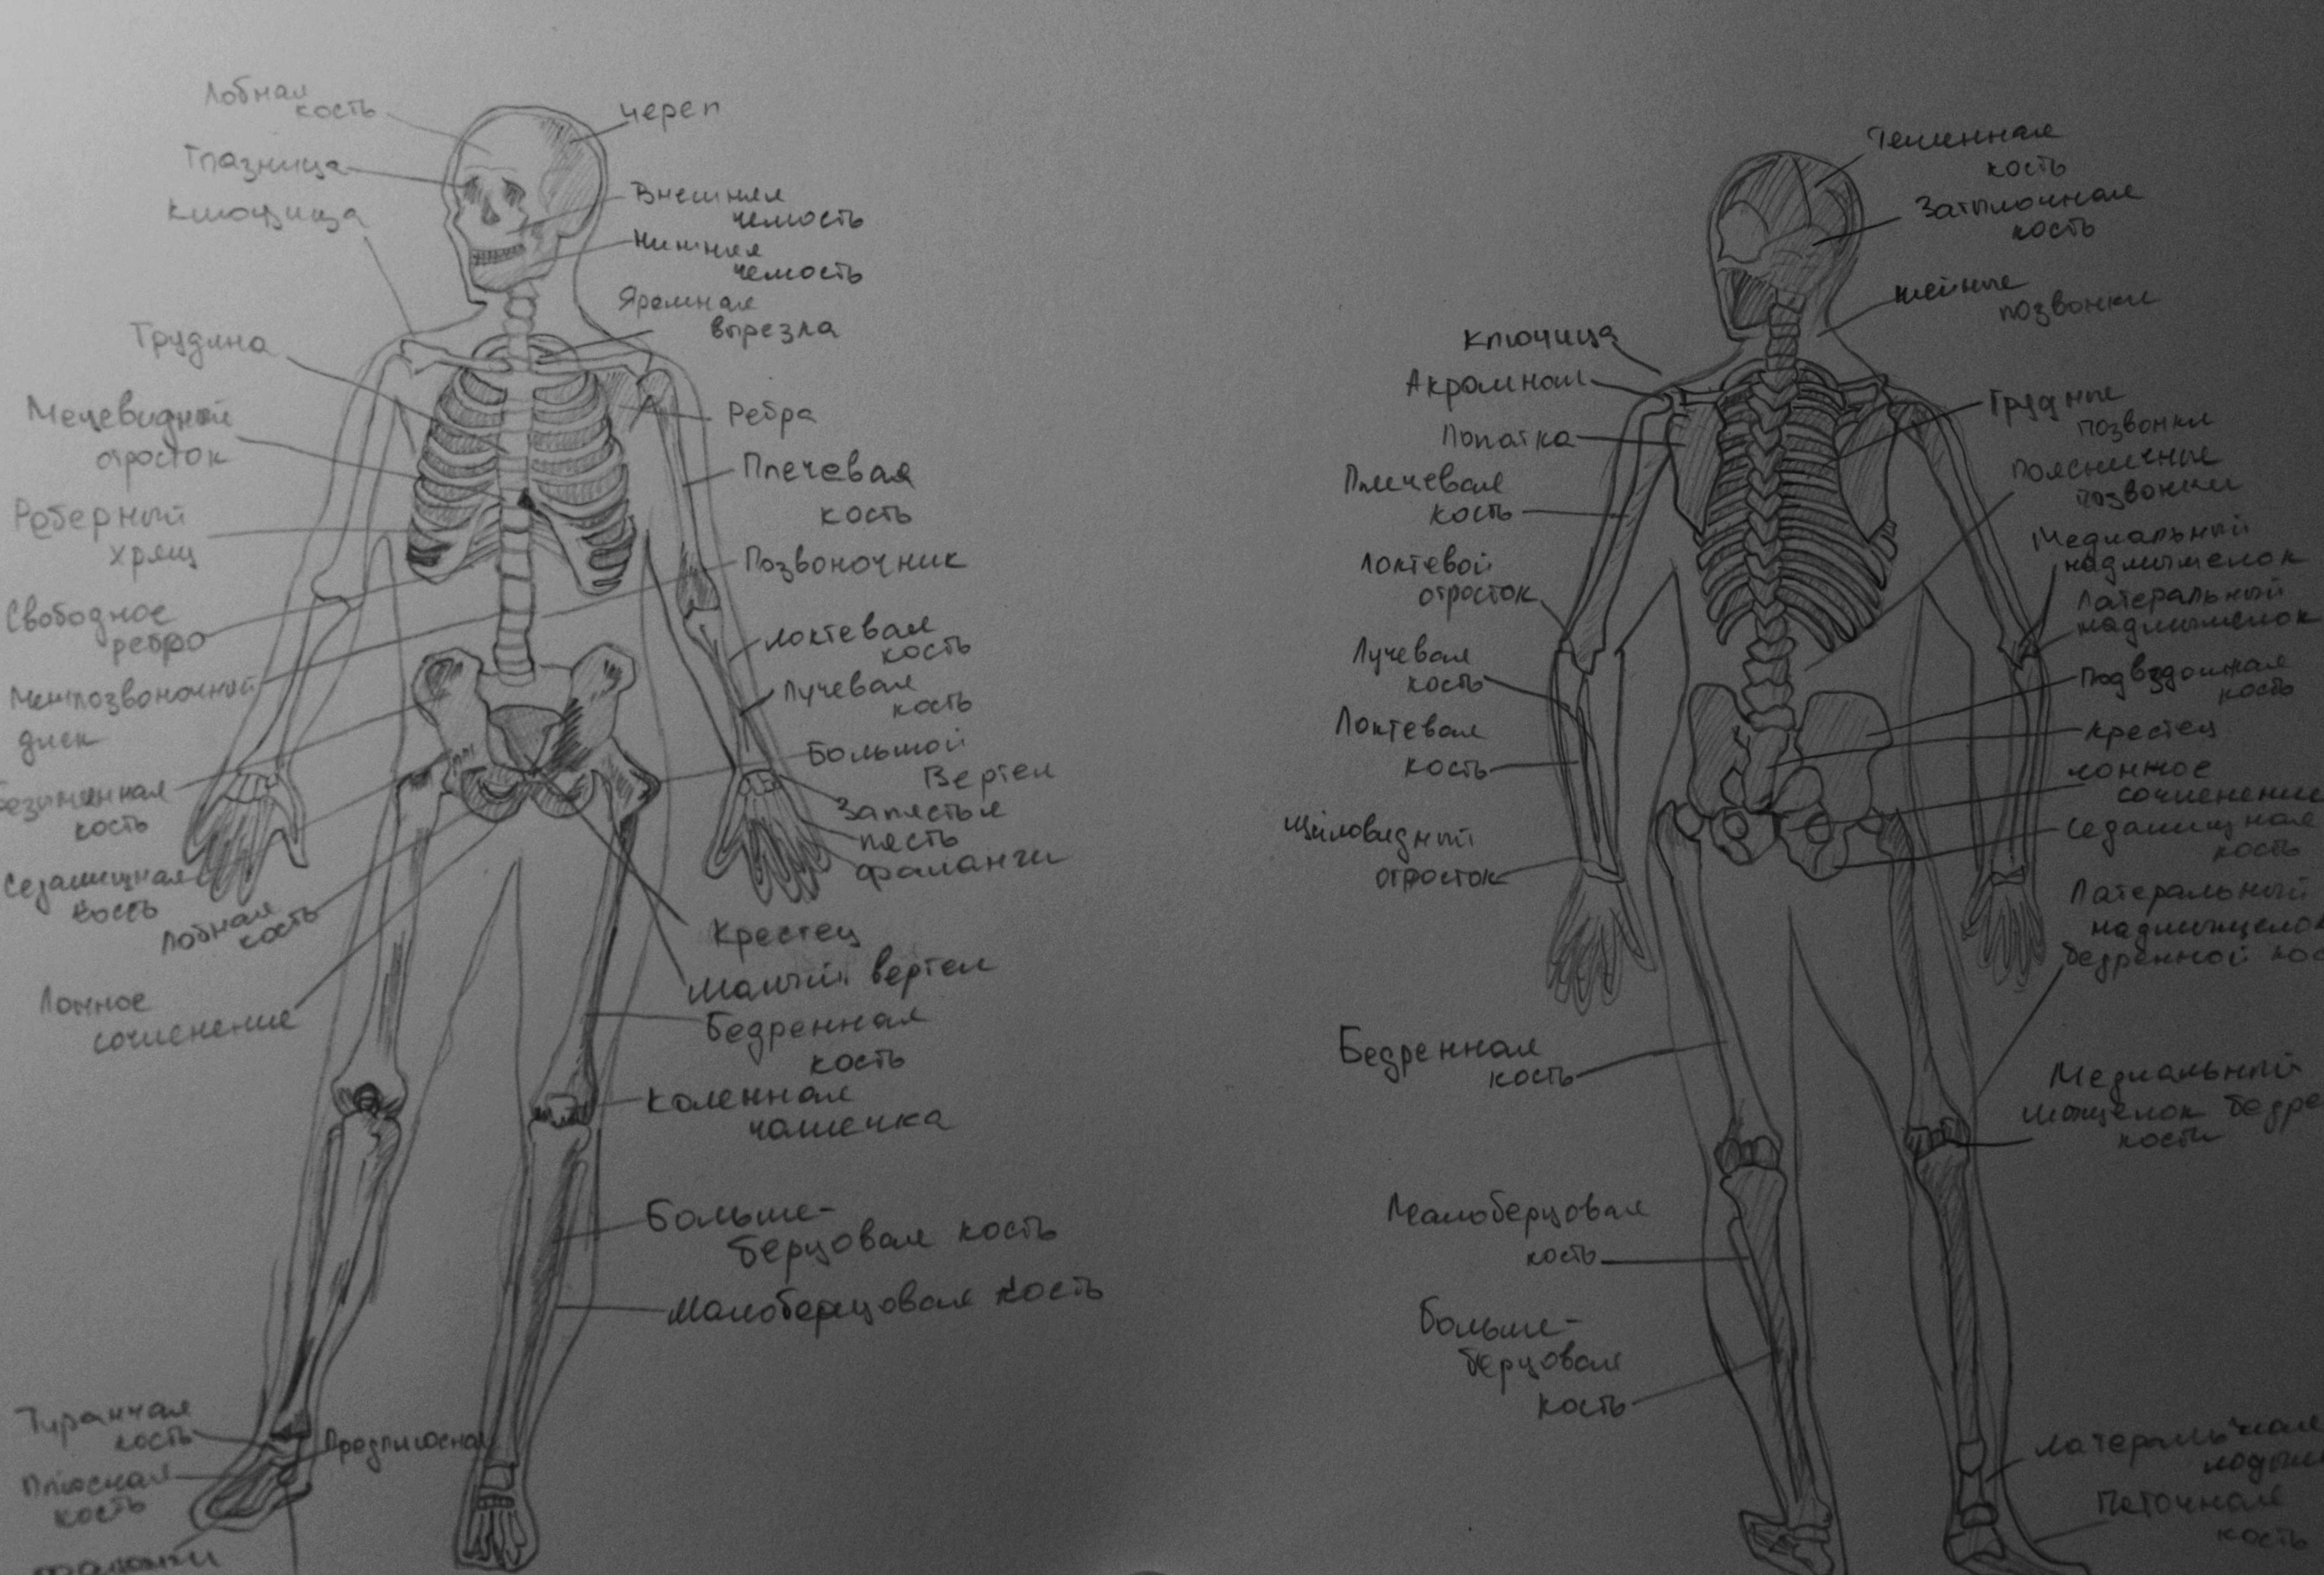 Лобная
кость
Глазница
Ключица
Грудина
Мечевидный
отросток
Реберный
хрящ
Свободное
ребро
Межпозвоночный
диск
Безымянная
кость
Седалищная
кость
Лобная
кость
Лонное
сочленение
Таранная
кость
Плюсная
кость
Фаланги
Предплюсная
череп
Внешняя
челюсть
Нижняя
челюсть
Яремная
вырезла
Ребра
Плечевая
кость
Позвоночник
Локтевая
кость
Лучевая
кость
Большой
Вертел
Запястье
пясть
фаланги
Крестец
Малый вертел
Бедренная
кость
Коленная
чашечка
Больше-
берцовая кость
Малоберцовая кость
Ключица
Акромион
Лопатка
Плечевая
кость
Локтевой
отросток
Лучевая
кость
Локтевая
кость
Шиловидный
отросток
Бедренная
кость
Малоберцовая
кость
Больше-
берцовая
кость
Теменная
кость
Затылочная
кость
шейные
позвонки
Грудные
позвонки
Поясничные
позвонки
Медиальный
надмыщелок
Латеральный
надмыщелок
Подвздошная
кость
Крестец
Лонное
сочленение
Седалищная
кость
Латеральный
надмыщелок
бедренной кос
Медиальный
мыщелок бедре
кости
Латеральная
лодыж
Пяточная
кость